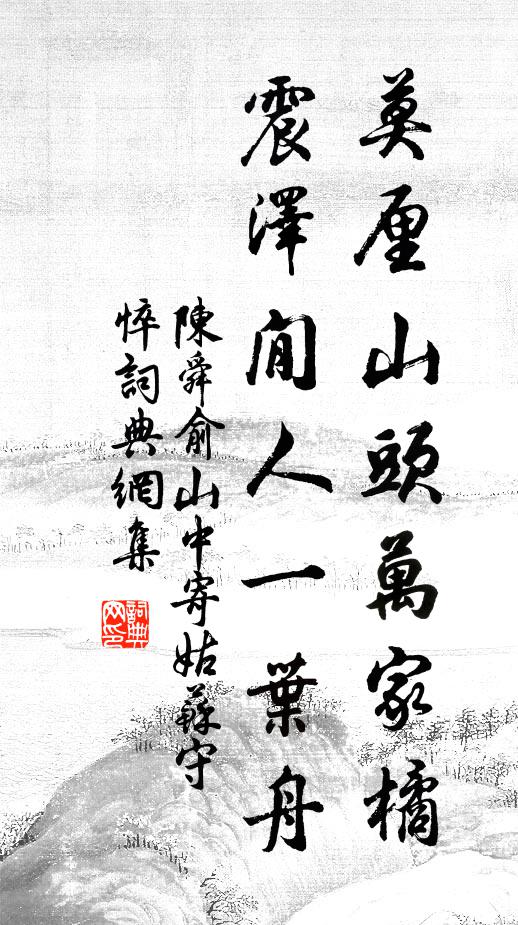 莫厘山頭萬家橘
震澤閒人一葉舟
陳舜俞山中寄姑蘇守
悴詞典網集
詞典網印